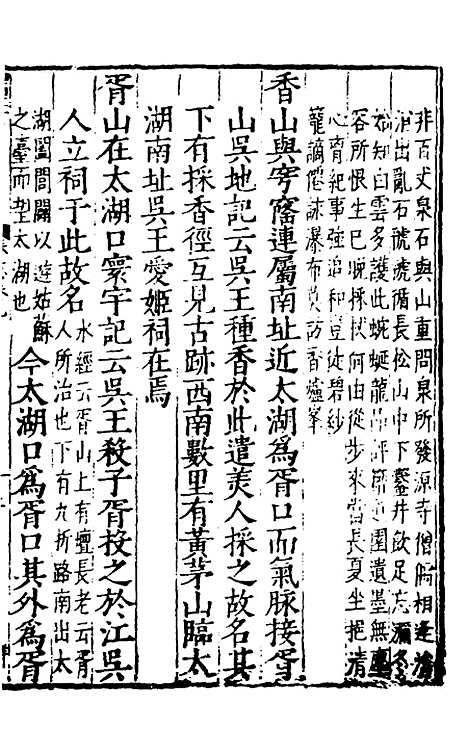 非百丈泉石與山重問泉所發源寺僧腸相逢清
汨出亂石虢虢循長松山中下鑿井飲足忘
始知白雲多護此蜿蜒龍品評園遺墨無
容所恨生已晚採拭何由從步來當長夏坐挹清
心齎紀事強追和豈徒碧紗
籠謫僊詠瀑布莫訪香爐峯
香山與穹窿連屬南址近太湖為胥口而氣脉接胥
山吳地記云吳王種香於此遣美人採之故名其
下有採香徑互見古跡西南數里有黃茅山臨太
湖南址吳王愛姬祠在焉
胥山在太湖口寰宇記云吳王殺子胥投之於江吳
人立祠于此故名
水經云胥山上有壇長老云胥
人所治也下有九折路南出太
湖闔閭闢以遊姑蘇
之臺而望太湖也
今太湖口為胥口其外為胥